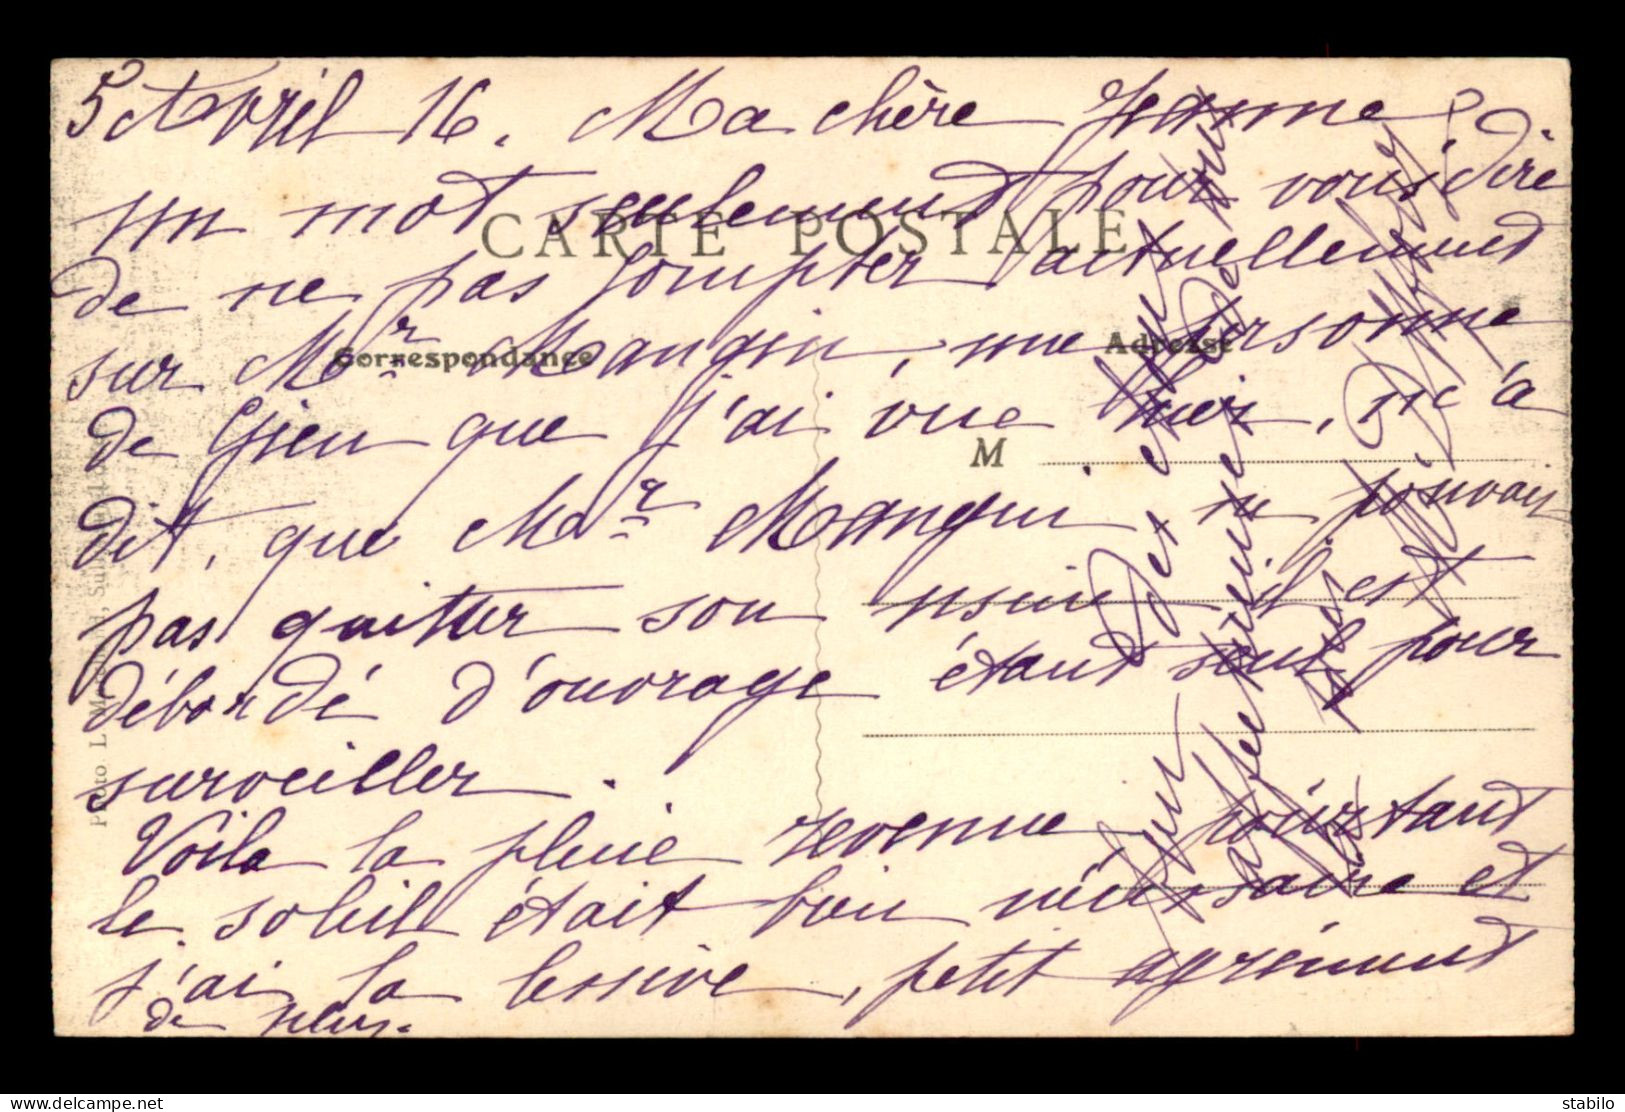 5 Avril 16. Ma chère Jeanne
un mot seulement pour vous dire
CARTE POSTALE
de ne pas compter actuellement
sur Mr Mangin, une personne
Correspondance
Adresse
de Gien que j'ai vue hier, m'a
M
dit, que Mr Mangin ne pouvait
pas quitter son usine il est
débordé d'ouvrage étant seul pour
surveiller.
Voila la pluie revenue, pourtant
le soleil était bien nécessaire et
j'ai la lessive, petit agrément
de plus.
affectueuse
Photo. L.